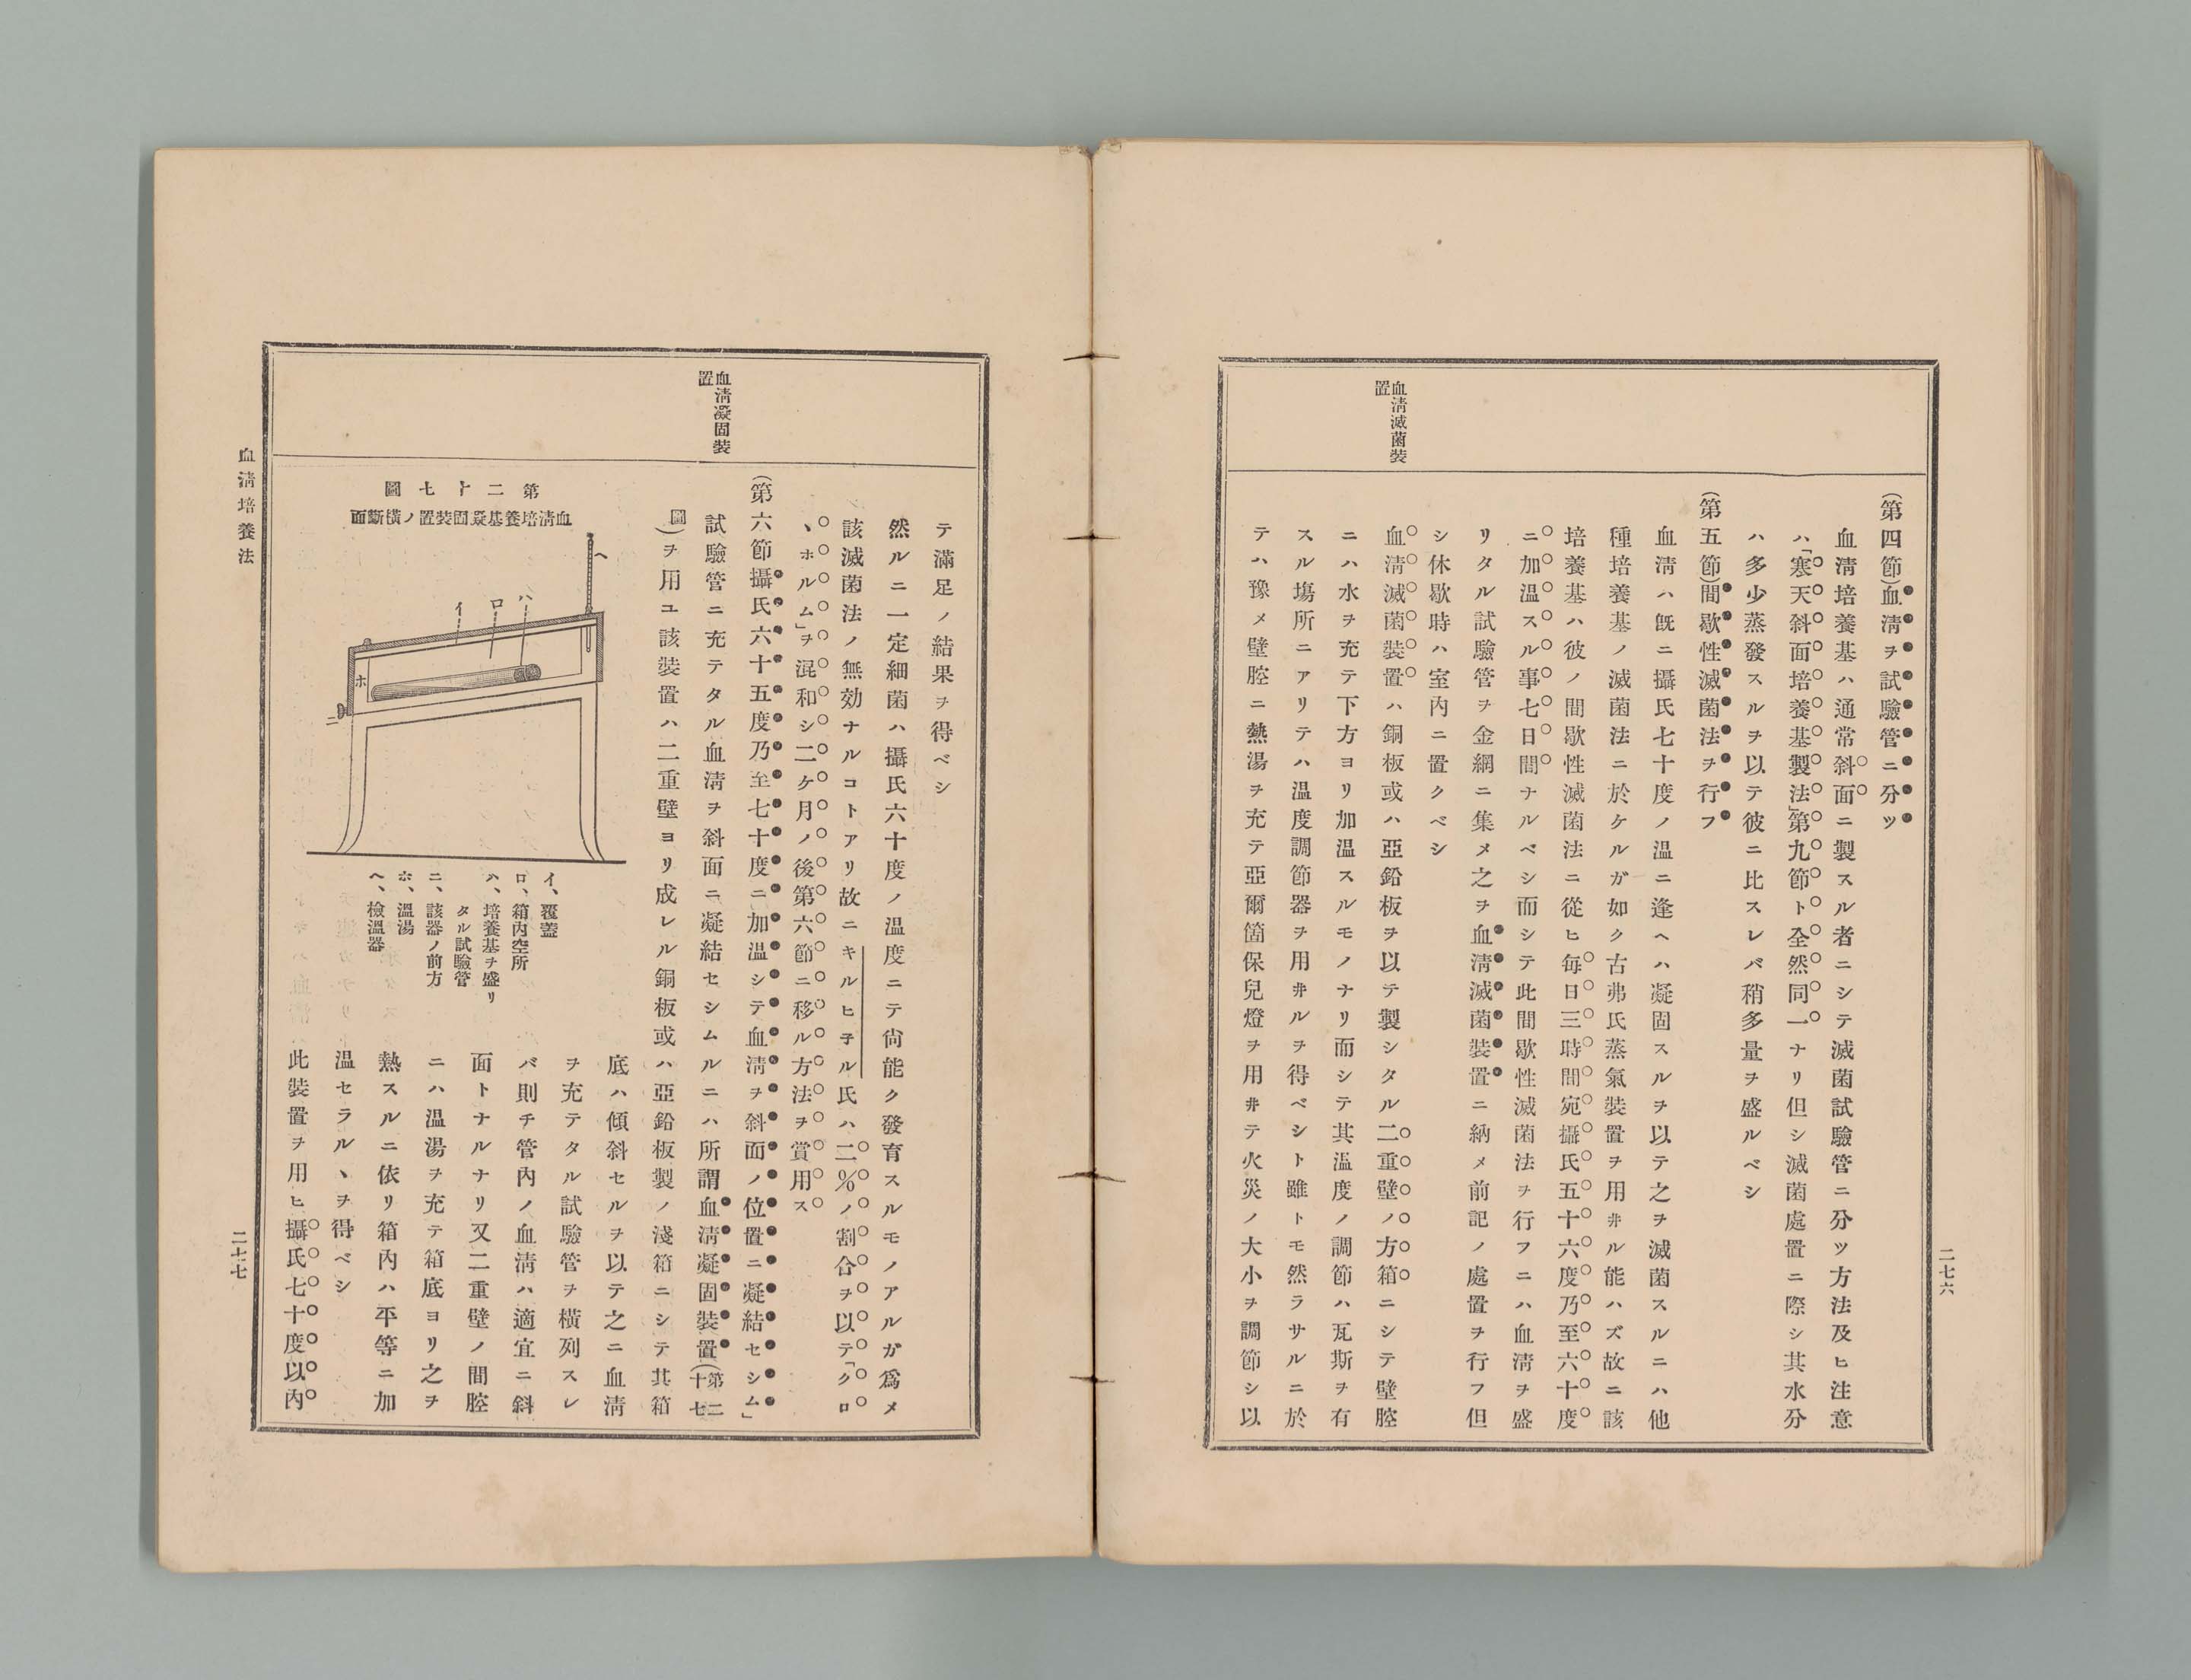 二七六
血清滅菌裝
置
(第四節)血清ヲ試驗管ニ分ツ
血清培養基ハ通常斜面ニ製スル者ニシテ滅菌試驗管ニ分ツ方法及ヒ注意
ハ「寒天斜面培養基製法」第九節ト全然同一ナリ但シ滅菌處置ニ際シ其水分
ハ多少蒸發スルヲ以テ彼ニ比スレバ稍多量ヲ盛ルベシ
(第五節)間歇性滅菌法ヲ行フ
血清ハ既ニ攝氏七十度ノ温ニ逢ヘハ凝固スルヲ以テ之ヲ滅菌スルニハ他
種培養基ノ滅菌法ニ於ケルガ如ク古弗氏蒸氣裝置ヲ用井ル能ハズ故ニ該
培養基ハ彼ノ間歇性滅菌法ニ從ヒ毎日三時間宛攝氏五十六度乃至六十度
ニ加温スル事七日間ナルベシ而シテ此間歇性滅菌法ヲ行フニハ血清ヲ盛
リタル試驗管ヲ金網ニ集メ之ヲ血清滅菌裝置ニ納メ前記ノ處置ヲ行フ但
シ休歇時ハ室内ニ置クベシ
血清滅菌裝置ハ銅板或ハ亞鉛板ヲ以テ製シタル二重壁ノ方箱ニシテ壁腔
ニハ水ヲ充テ下方ヨリ加温スルモノナリ而シテ其溫度ノ調節ハ瓦斯ヲ有
スル塲所ニアリテハ温度調節器ヲ用井ルヲ得ベシト雖トモ然ラサルニ於
テハ豫メ壁腔ニ熱湯ヲ充テ亞爾箇保兒燈ヲ用井テ火災ノ大小ヲ調節シ以
血清凝固裝
置
テ滿足ノ結果ヲ得ベシ
然ルニ一定細菌ハ攝氏六十度ノ温度ニテ尙能ク發育スルモノアルガ爲メ
該滅菌法ノ無効ナルコトアリ故ニキルヒ子ル氏ハ二%ノ割合ヲ以テ「クロ
、ホルム」ヲ混和シ二ケ月ノ後第六節ニ移ル方法ヲ賞用ス
(第六節攝氏六十五度乃至七十度ニ加温シテ血清ヲ斜面ノ位置ニ凝結セシム」
試驗管ニ充テタル血清ヲ斜面ニ凝結セシムルニハ所謂血清凝固裝置(第二
十七
圖)ヲ用ユ該裝置ハ二重壁ヨリ成レル銅板或ハ亞鉛板製ノ淺箱ニシテ其箱
底ハ傾斜セルヲ以テ之ニ血清
ヲ充テタル試驗管ヲ橫列スレ
バ則チ管内ノ血清ハ適宜ニ斜
面トナルナリ又二重壁ノ間腔
ニハ温湯ヲ充テ箱底ヨリ之ヲ
熱スルニ依リ箱内ハ平等ニ加
温セラル、ヲ得ベシ
此裝置ヲ用ヒ攝氏七十度以内
第二十七圖
血清培養基凝固裝置ノ橫斷面
ヘ
ハ
ロ
イ
ホ
ニ
イ、覆蓋
ロ、箱内空所
ハ、培養基ヲ盛リ
タル試驗管
ニ、該器ノ前方
ホ、溫湯
ヘ、檢溫器
血清培養法
二七七